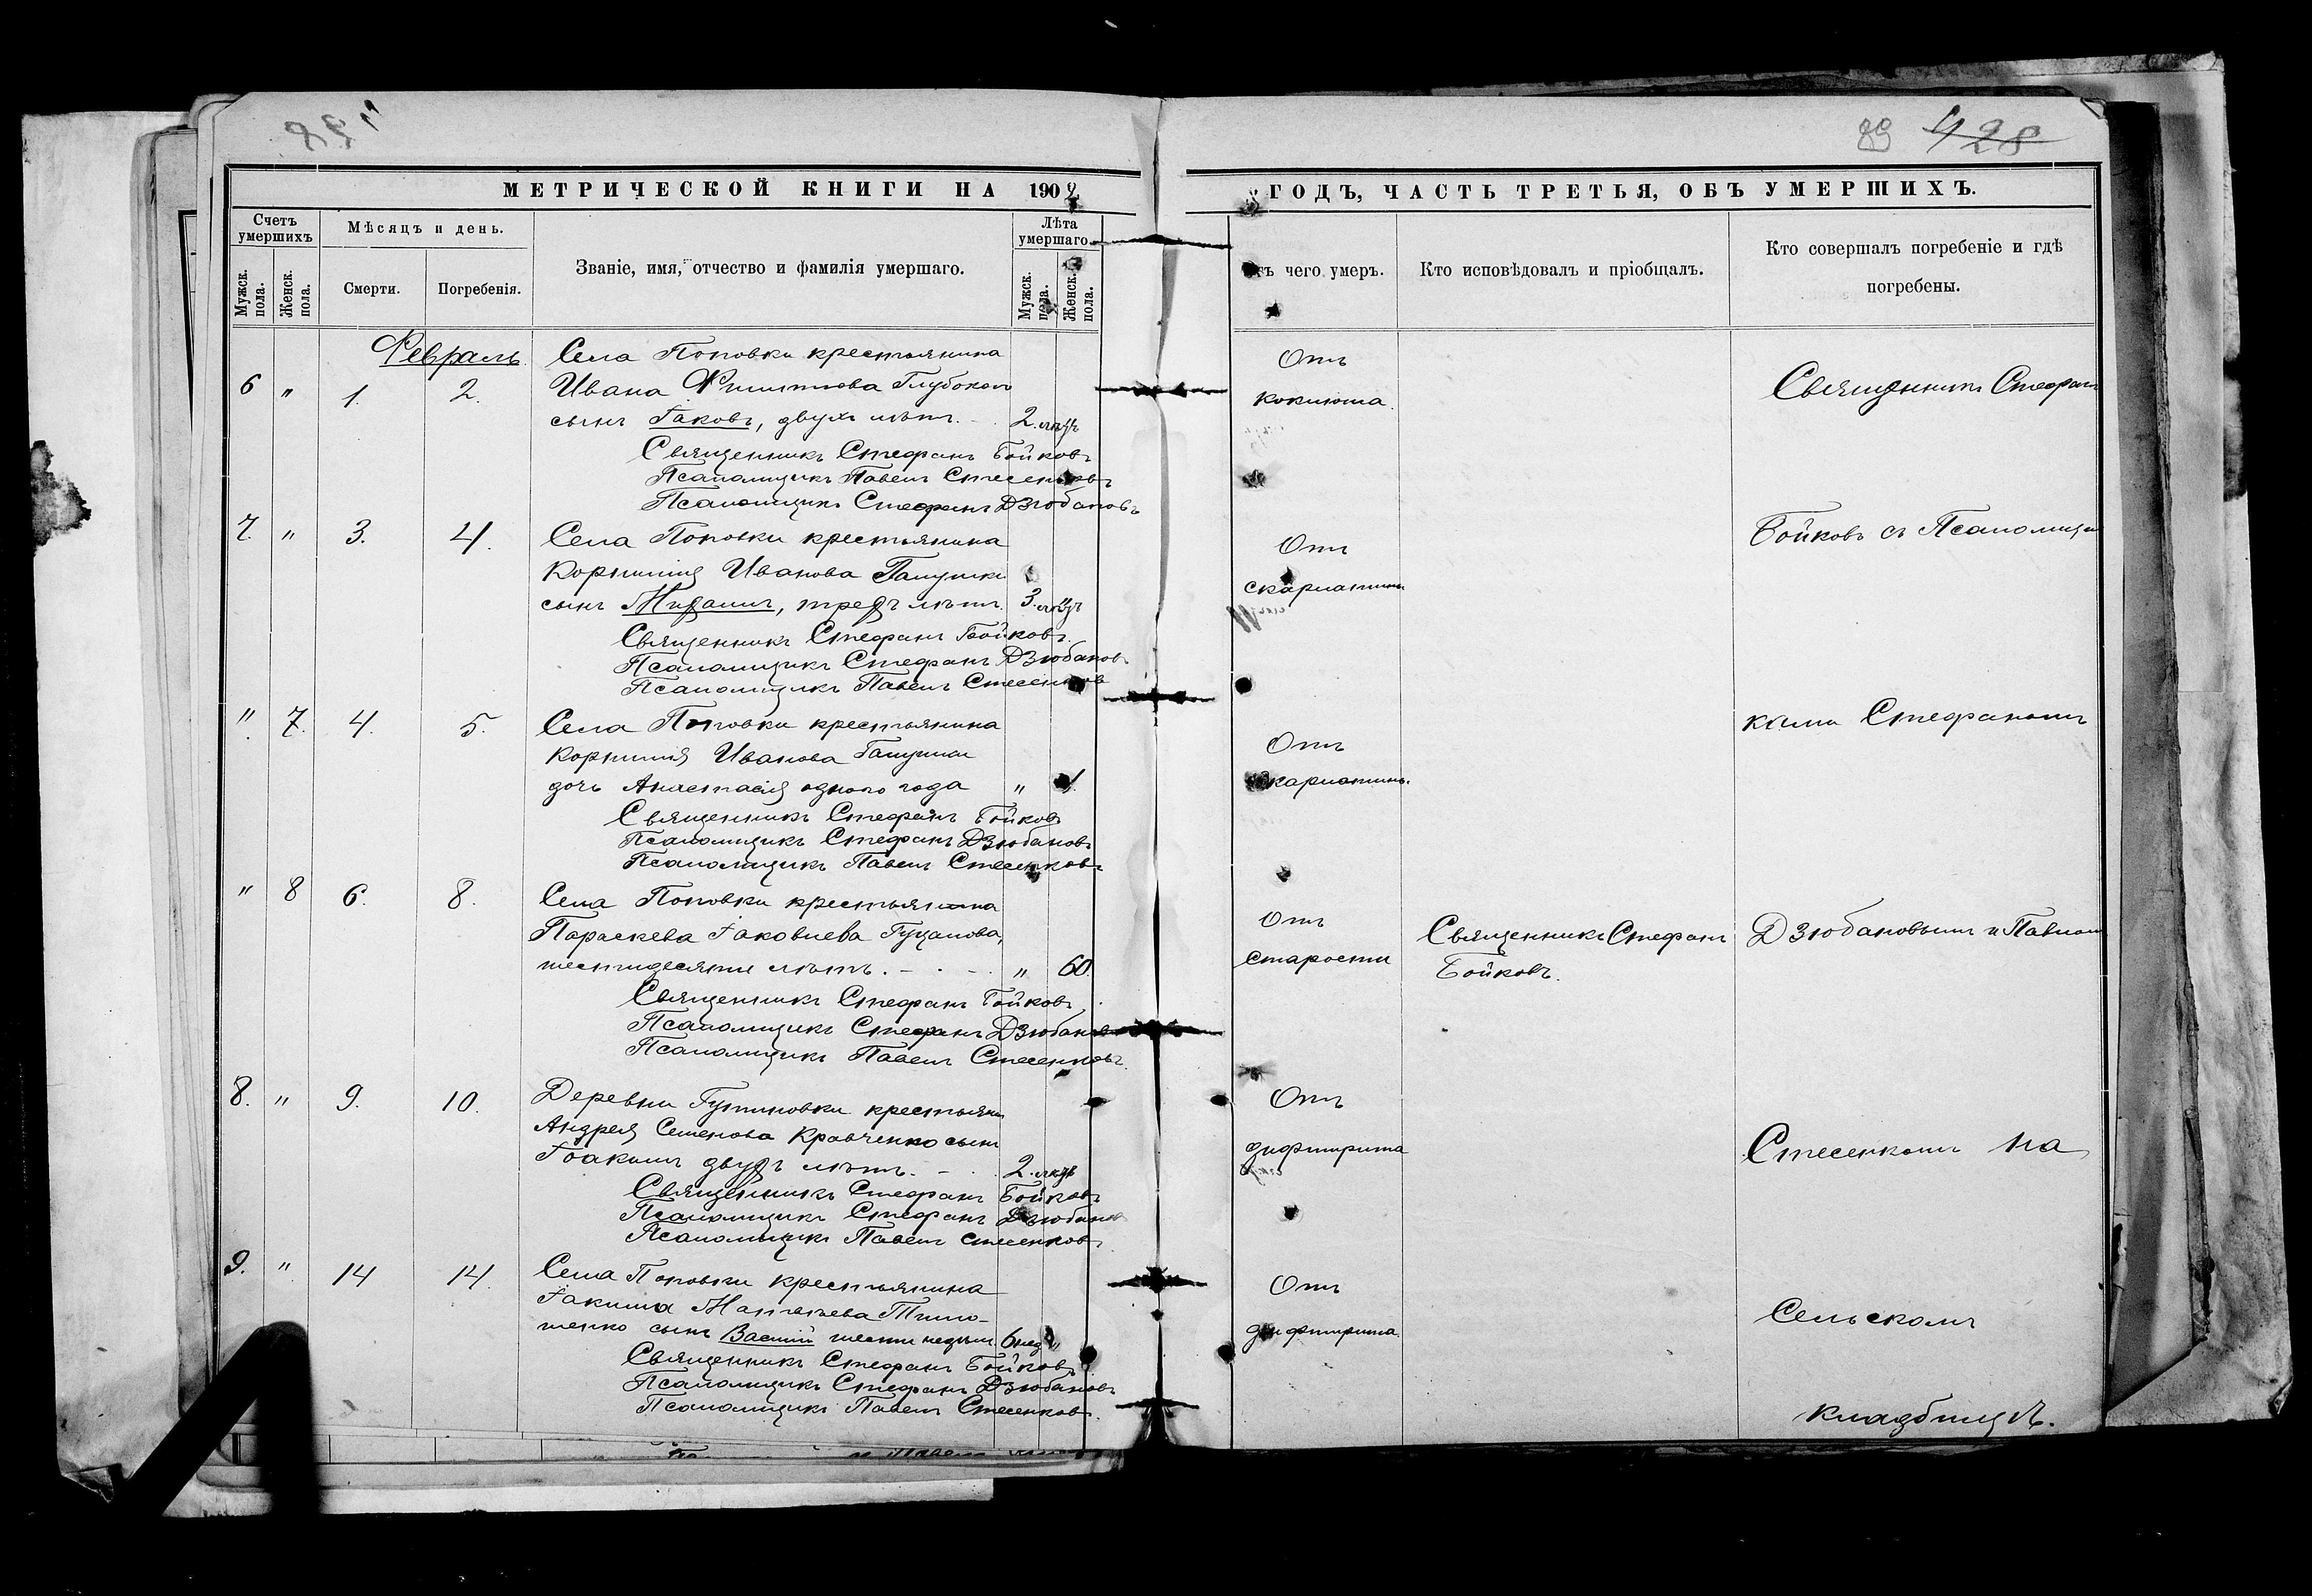 89 428
МЕТРИЧЕСКОЙ КНИГИ НА 1902
ГОДЪ, ЧАСТЬ ТРЕТЬЯ, ОБЪ УМЕРШИХЪ.
Счетъ умершихъ
Мужск. пола.
Женск. пола.
Мѣсяцъ и день.
Смерти.
Погребенія.
Званіе, имя, отчество и фамилія умершаго.
Лѣта умершаго.
Мужск. пола.
Женск. пола.
чего умеръ.
Кто исповѣдовалъ и пріобщалъ.
Кто совершалъ погребеніе и гдѣ
погребены.
Февраль
Села Поповки крестьянина
6 " 1. 2. Ивана Филиппова
сынъ Іаковъ, двухъ лѣтъ. 2.
Священникъ Стефанъ Бойковъ
Псаломщикъ Павелъ Стесенковъ
Псаломщикъ Стефанъ Дзюбановъ
Отъ
коклюша.
7. " 3. 4. Села Поповки крестьянина
Корнилія Иванова Галушки
сынъ Михаилъ, трехъ лѣтъ. 3.
Священникъ Стефанъ Бойковъ.
Псаломщикъ Стефанъ Дзюбановъ
Псаломщикъ Павелъ Стесенковъ
Отъ
скарлатины
" 7. 4. 5. Села Поповки крестьянина
Корнилія Иванова Галушки
дочь Анастасія одного года " 1.
Священникъ Стефанъ Бойковъ
Псаломщикъ Стефанъ Дзюбановъ
Псаломщикъ Павелъ Стесенковъ
Отъ
скарлатины.
" 8 6. 8. Села Поповки крестьянка
Параскева Іаковлева
шестидесяти лѣтъ. " 60.
Священникъ Стефанъ Бойковъ
Псаломщикъ Стефанъ Дзюбановъ
Псаломщикъ Павелъ Стесенковъ.
Отъ
старости
Священникъ Стефанъ
Бойковъ.
8. " 9. 10. Деревни
Андрея Семенова Кравченко сынъ
Іоакимъ двухъ лѣтъ. 2.
Священникъ Стефанъ Бойковъ
Псаломщикъ Стефанъ Дзюбановъ
Псаломщикъ Павелъ Стесенковъ
Отъ
дифтирита
9. " 14 14. Села Поповки крестьянина
Іакима Тимо-
шенко сынъ Василій шести недѣль. 6 нед. "
Священникъ Стефанъ Бойковъ
Псаломщикъ Стефанъ Дзюбановъ
Псаломщикъ Павелъ Стесенковъ.
Отъ
дифтирита.
Священникъ Стефанъ
Бойковъ съ Псаломщи
ками Стефаномъ
Дзюбановымъ и Павломъ
Стесенкомъ на
Сельскомъ
кладбищѣ.